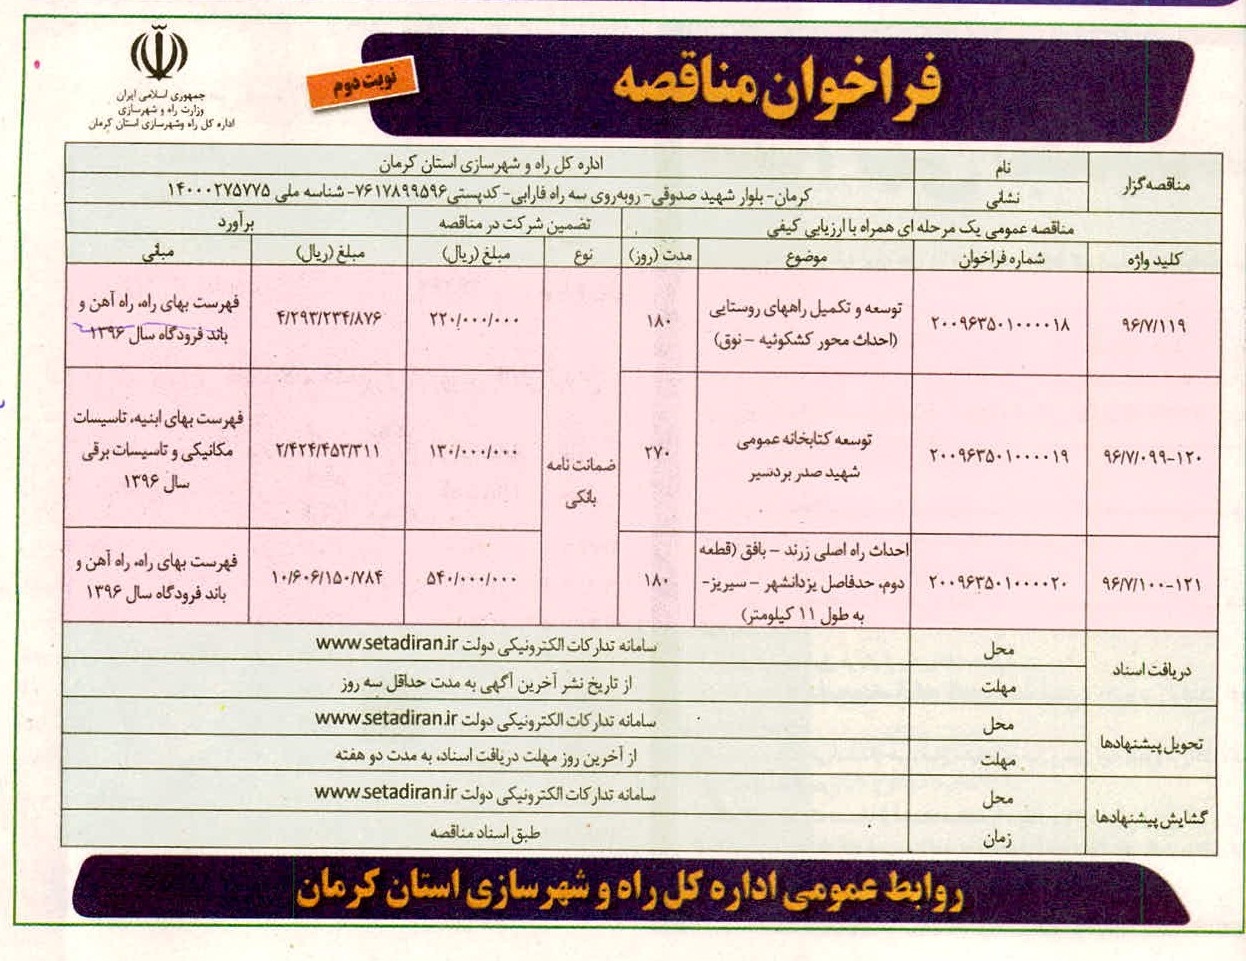 جمهوری اسلامی ایران
وزارت راه و شهرسازی
اداره کل راه وشهرسازی استان کرمان
فراخوان مناقصه
نوبت دوم
مناقصه‌گزار
نام
اداره کل راه و شهرسازی استان کرمان
نشانی
کرمان- بلوار شهید صدوقی- روبه‌روی سه راه فارابی- کدپستی۷۶۱۷۸۹۹۵۹۶- شناسه ملی ۱۴۰۰۰۲۷۵۷۷۵
مناقصه عمومی یک مرحله ای همراه با ارزیابی کیفی
تضمین شرکت در مناقصه
برآورد
کلید واژه
شماره فراخوان
موضوع
مدت (روز)
نوع
مبلغ (ریال)
مبلغ (ریال)
مبانی
۹۶/۷/۱۱۹
۲۰۰۹۶۳۵۰۱۰۰۰۰۱۸
توسعه و تکمیل راههای روستایی
(احداث محور کشکوئیه - نوق)
۱۸۰
۲۲۰/۰۰۰/۰۰۰
۴/۲۹۳/۲۳۴/۸۷۶
فهرست بهای راه، راه آهن و
باند فرودگاه سال ۱۳۹۶
۹۶/۷/۰۹۹-۱۲۰
۲۰۰۹۶۳۵۰۱۰۰۰۰۱۹
توسعه کتابخانه عمومی
شهید صدر بردسیر
۲۷۰
ضمانت نامه
بانکی
۱۳۰/۰۰۰/۰۰۰
۲/۴۲۴/۴۵۳/۳۱۱
فهرست بهای ابنیه، تاسیسات
مکانیکی و تاسیسات برقی
سال ۱۳۹۶
۹۶/۷/۱۰۰-۱۲۱
۲۰۰۹۶۳۵۰۱۰۰۰۰۲۰
احداث راه اصلی زرند - بافق (قطعه
دوم، حدفاصل یزدانشهر - سیریز-
به طول ۱۱ کیلومتر)
۱۸۰
۵۴۰/۰۰۰/۰۰۰
۱۰/۶۰۶/۱۵۰/۷۸۴
فهرست بهای راه، راه آهن و
باند فرودگاه سال ۱۳۹۶
دریافت اسناد
محل
سامانه تدارکات الکترونیکی دولت www.setadiran.ir
مهلت
از تاریخ نشر آخرین آگهی به مدت حداقل سه روز
تحویل پیشنهادها
محل
سامانه تدارکات الکترونیکی دولت www.setadiran.ir
مهلت
از آخرین روز مهلت دریافت اسناد، به مدت دو هفته
گشایش پیشنهادها
محل
سامانه تدارکات الکترونیکی دولت www.setadiran.ir
زمان
طبق اسناد مناقصه
روابط عمومی اداره کل راه و شهرسازی استان کرمان